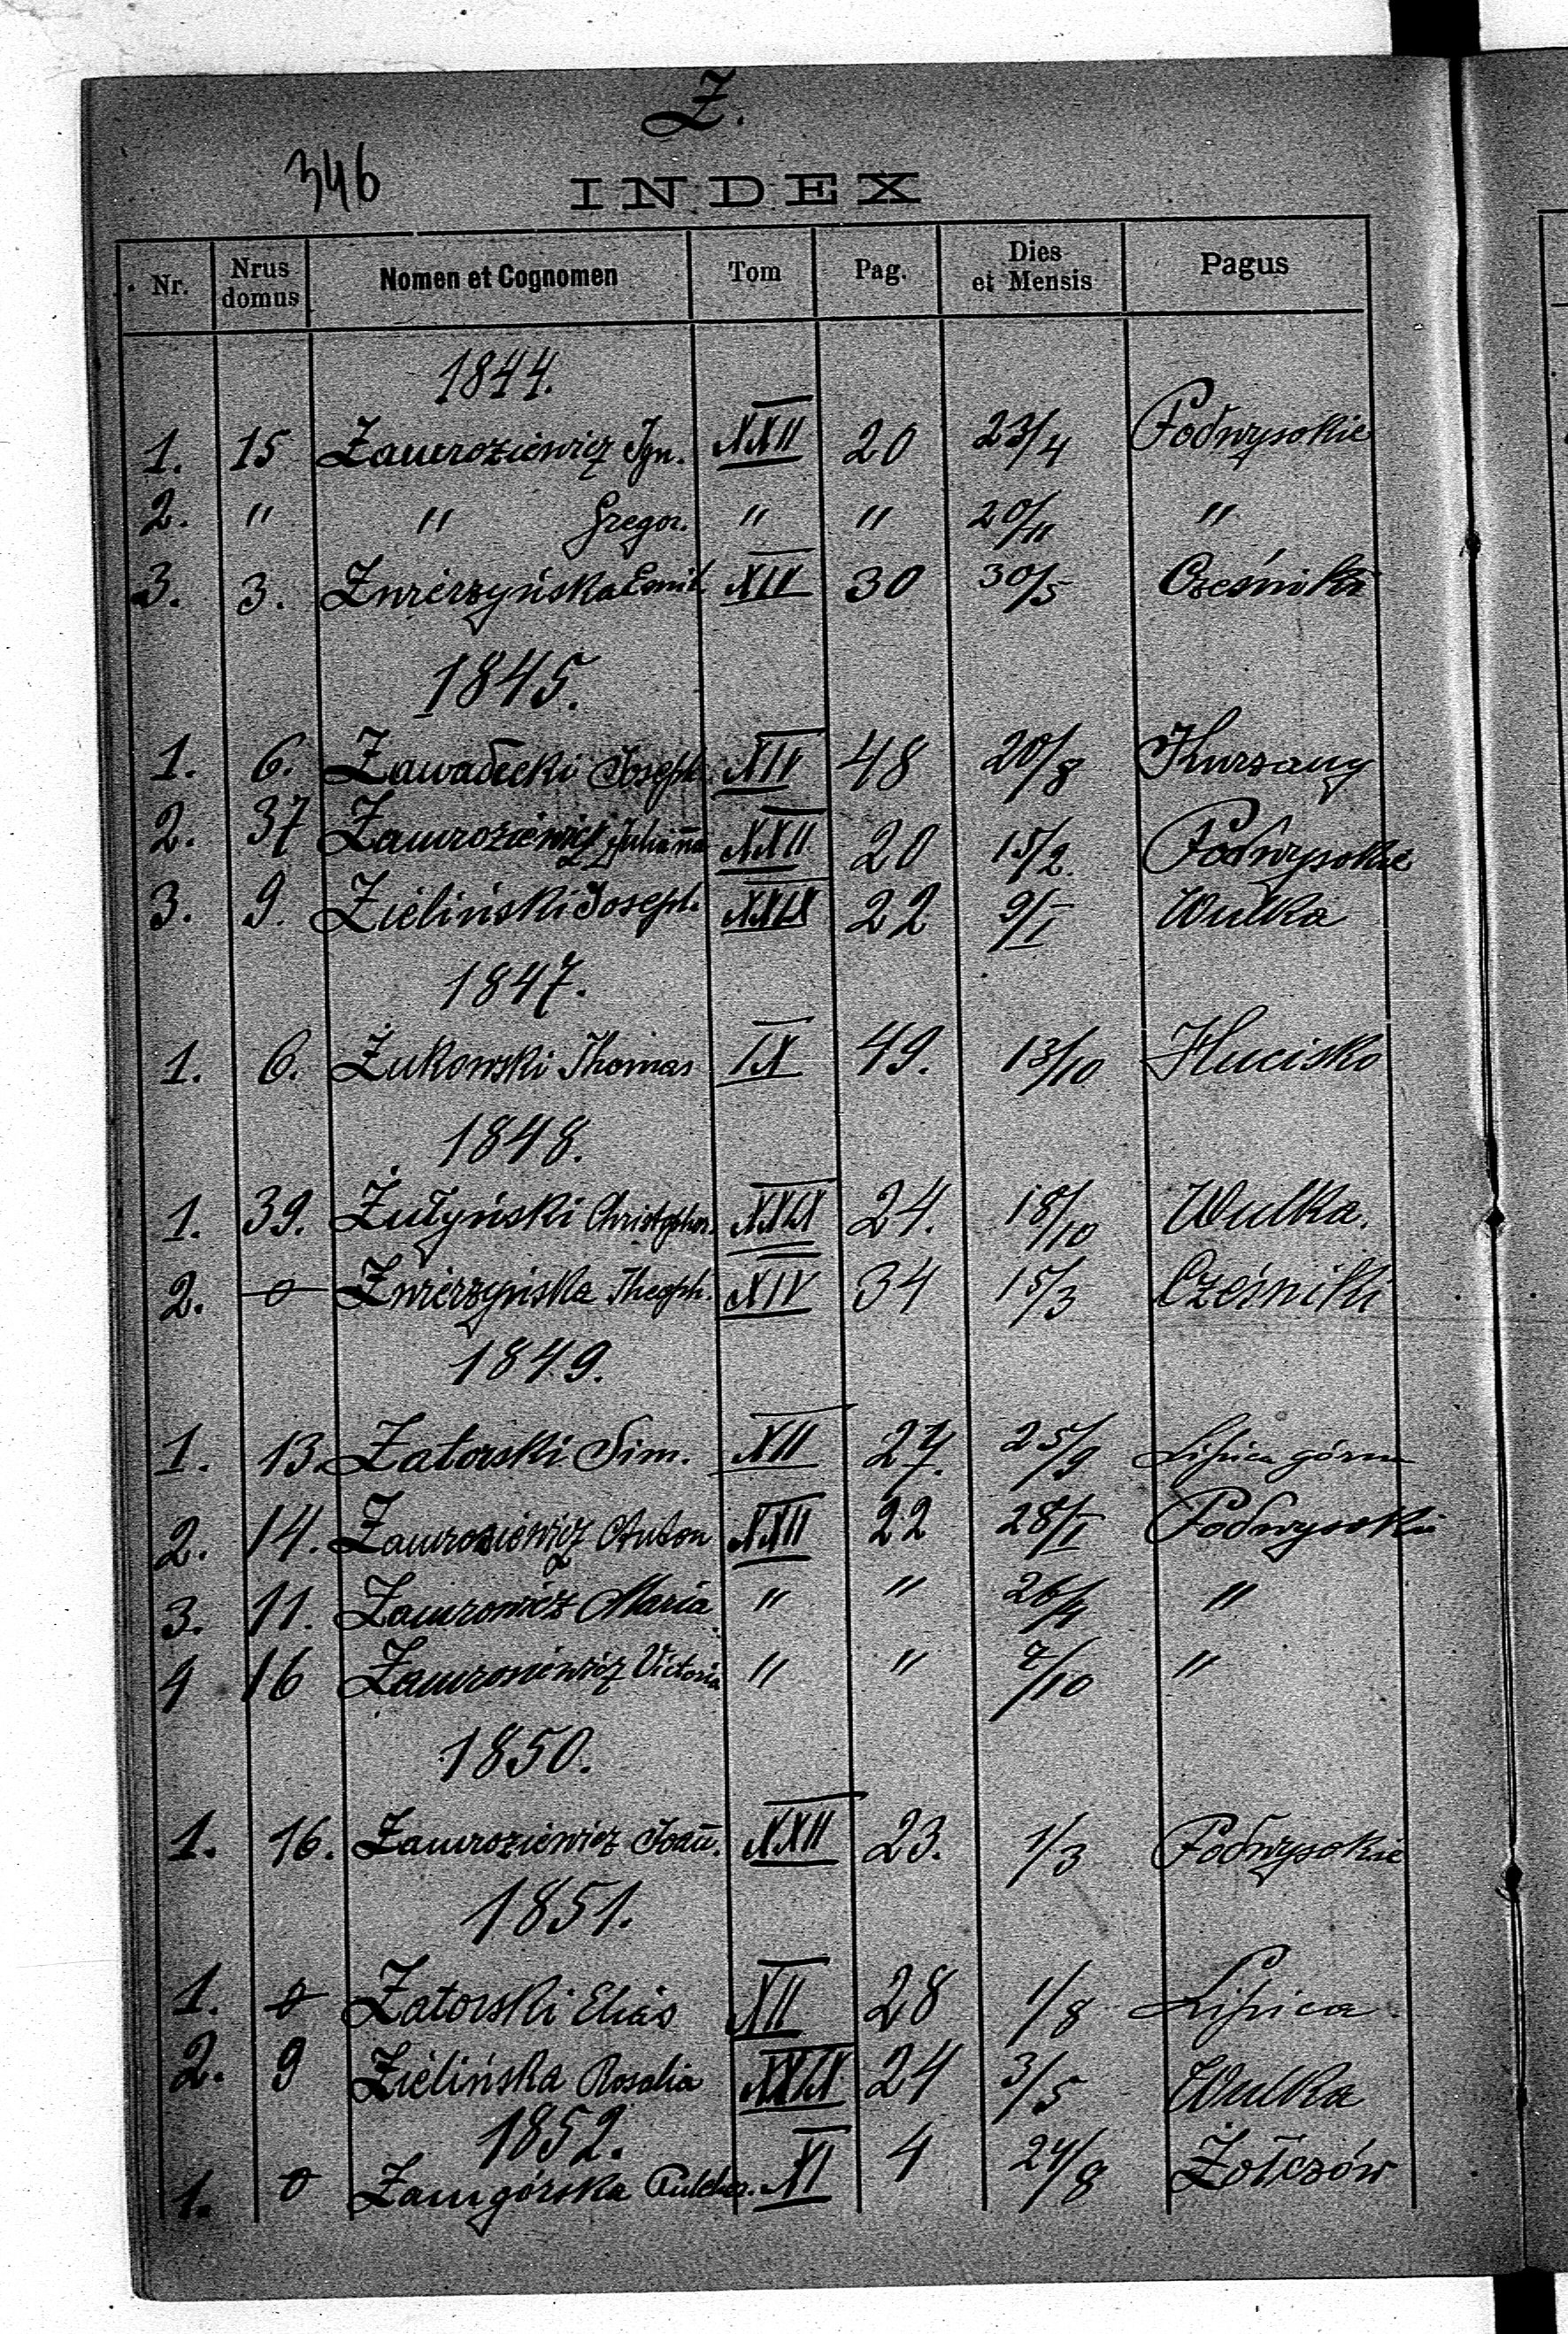 Z.
346
INDEX
Nr. Nrus domus Nomen et Cognomen Tom Pag. Dies et Mensis Pagus
1844.
1. 15 Zawroziewicz Ign. XXII 20 23/4 Podwysokie
2. " " Gregor. " " 20/11 "
3. 3. Zwierzyńska Emil. XIV 30 30/5 Cześniki
1845.
1. 6. Zawadecki Joseph. XIV 48 20/8 Kurzany
2. 37 Zawroziewicz Julianna XXII 20 15/2. Podwysokie
3. 9. Zieliński Joseph. XXIX 22 9/I Wulka
1847.
1. 6. Żukowski Thomas IX 49. 13/10 Hucisko
1848.
1. 39. Żułyński Christophor. XXIX 24. 18/10 Wulka.
2. o Zwierzyńska Theoph. XIV 34 15/3 Cześniki
1849.
1. 13. Zatorski Sim. XII 27. 25/9 Lipica górna
2. 14. Zawroziewicz Anton XXII 22 28/I Podwysokie
3. 11. Zawrowicz Maria " " 26/4 "
4 16 Zawroniewicz Victoria " " /10 "
1850.
1. 16. Zawroziewicz Joan. XXII 23. 1/3 Podwysokie
1851.
1. o Zatorski Elias XII 28 1/8 Lipica
2. 9 Zielińska Rosalia XXIX 24 3/5 Wulka
1852.
1. o Zamgórska Pulcher. XI 4 24/8 Żołczów